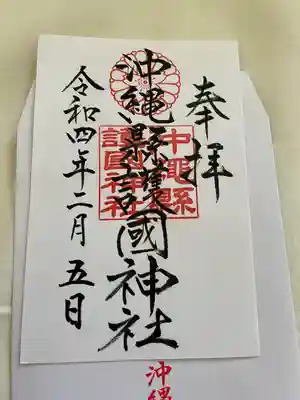 奉拝
沖縄縣護國神社
令和四年二月五日
沖縄縣
護國神社
沖縄